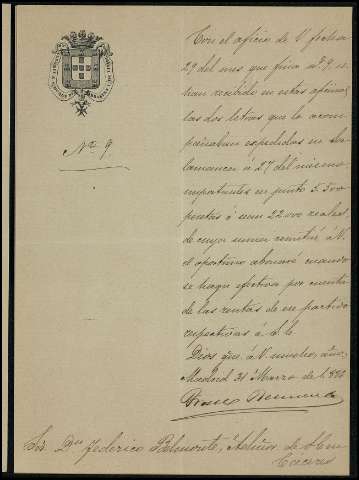 Nº 9.
Con el oficio de V. fecha
29 del mes que fina nº 9, se
han recibido en estas oficinas
las dos letras que le acom-
pañaban espedidas en Sa-
lamanca á 27 del mismo
importantes en junto 5.500
pesetas ó sean 22.000 reales,
de cuya suma remitiré á V.
el oportuno abonaré cuando
se haga efectiva por cuenta
de las rentas de su partido
respectivas á S. E.
Dios gue. á V. muchos años
Madrid 31 Marzo de 1.884
Sor. Dn. Federico Belmonte,
Cáceres